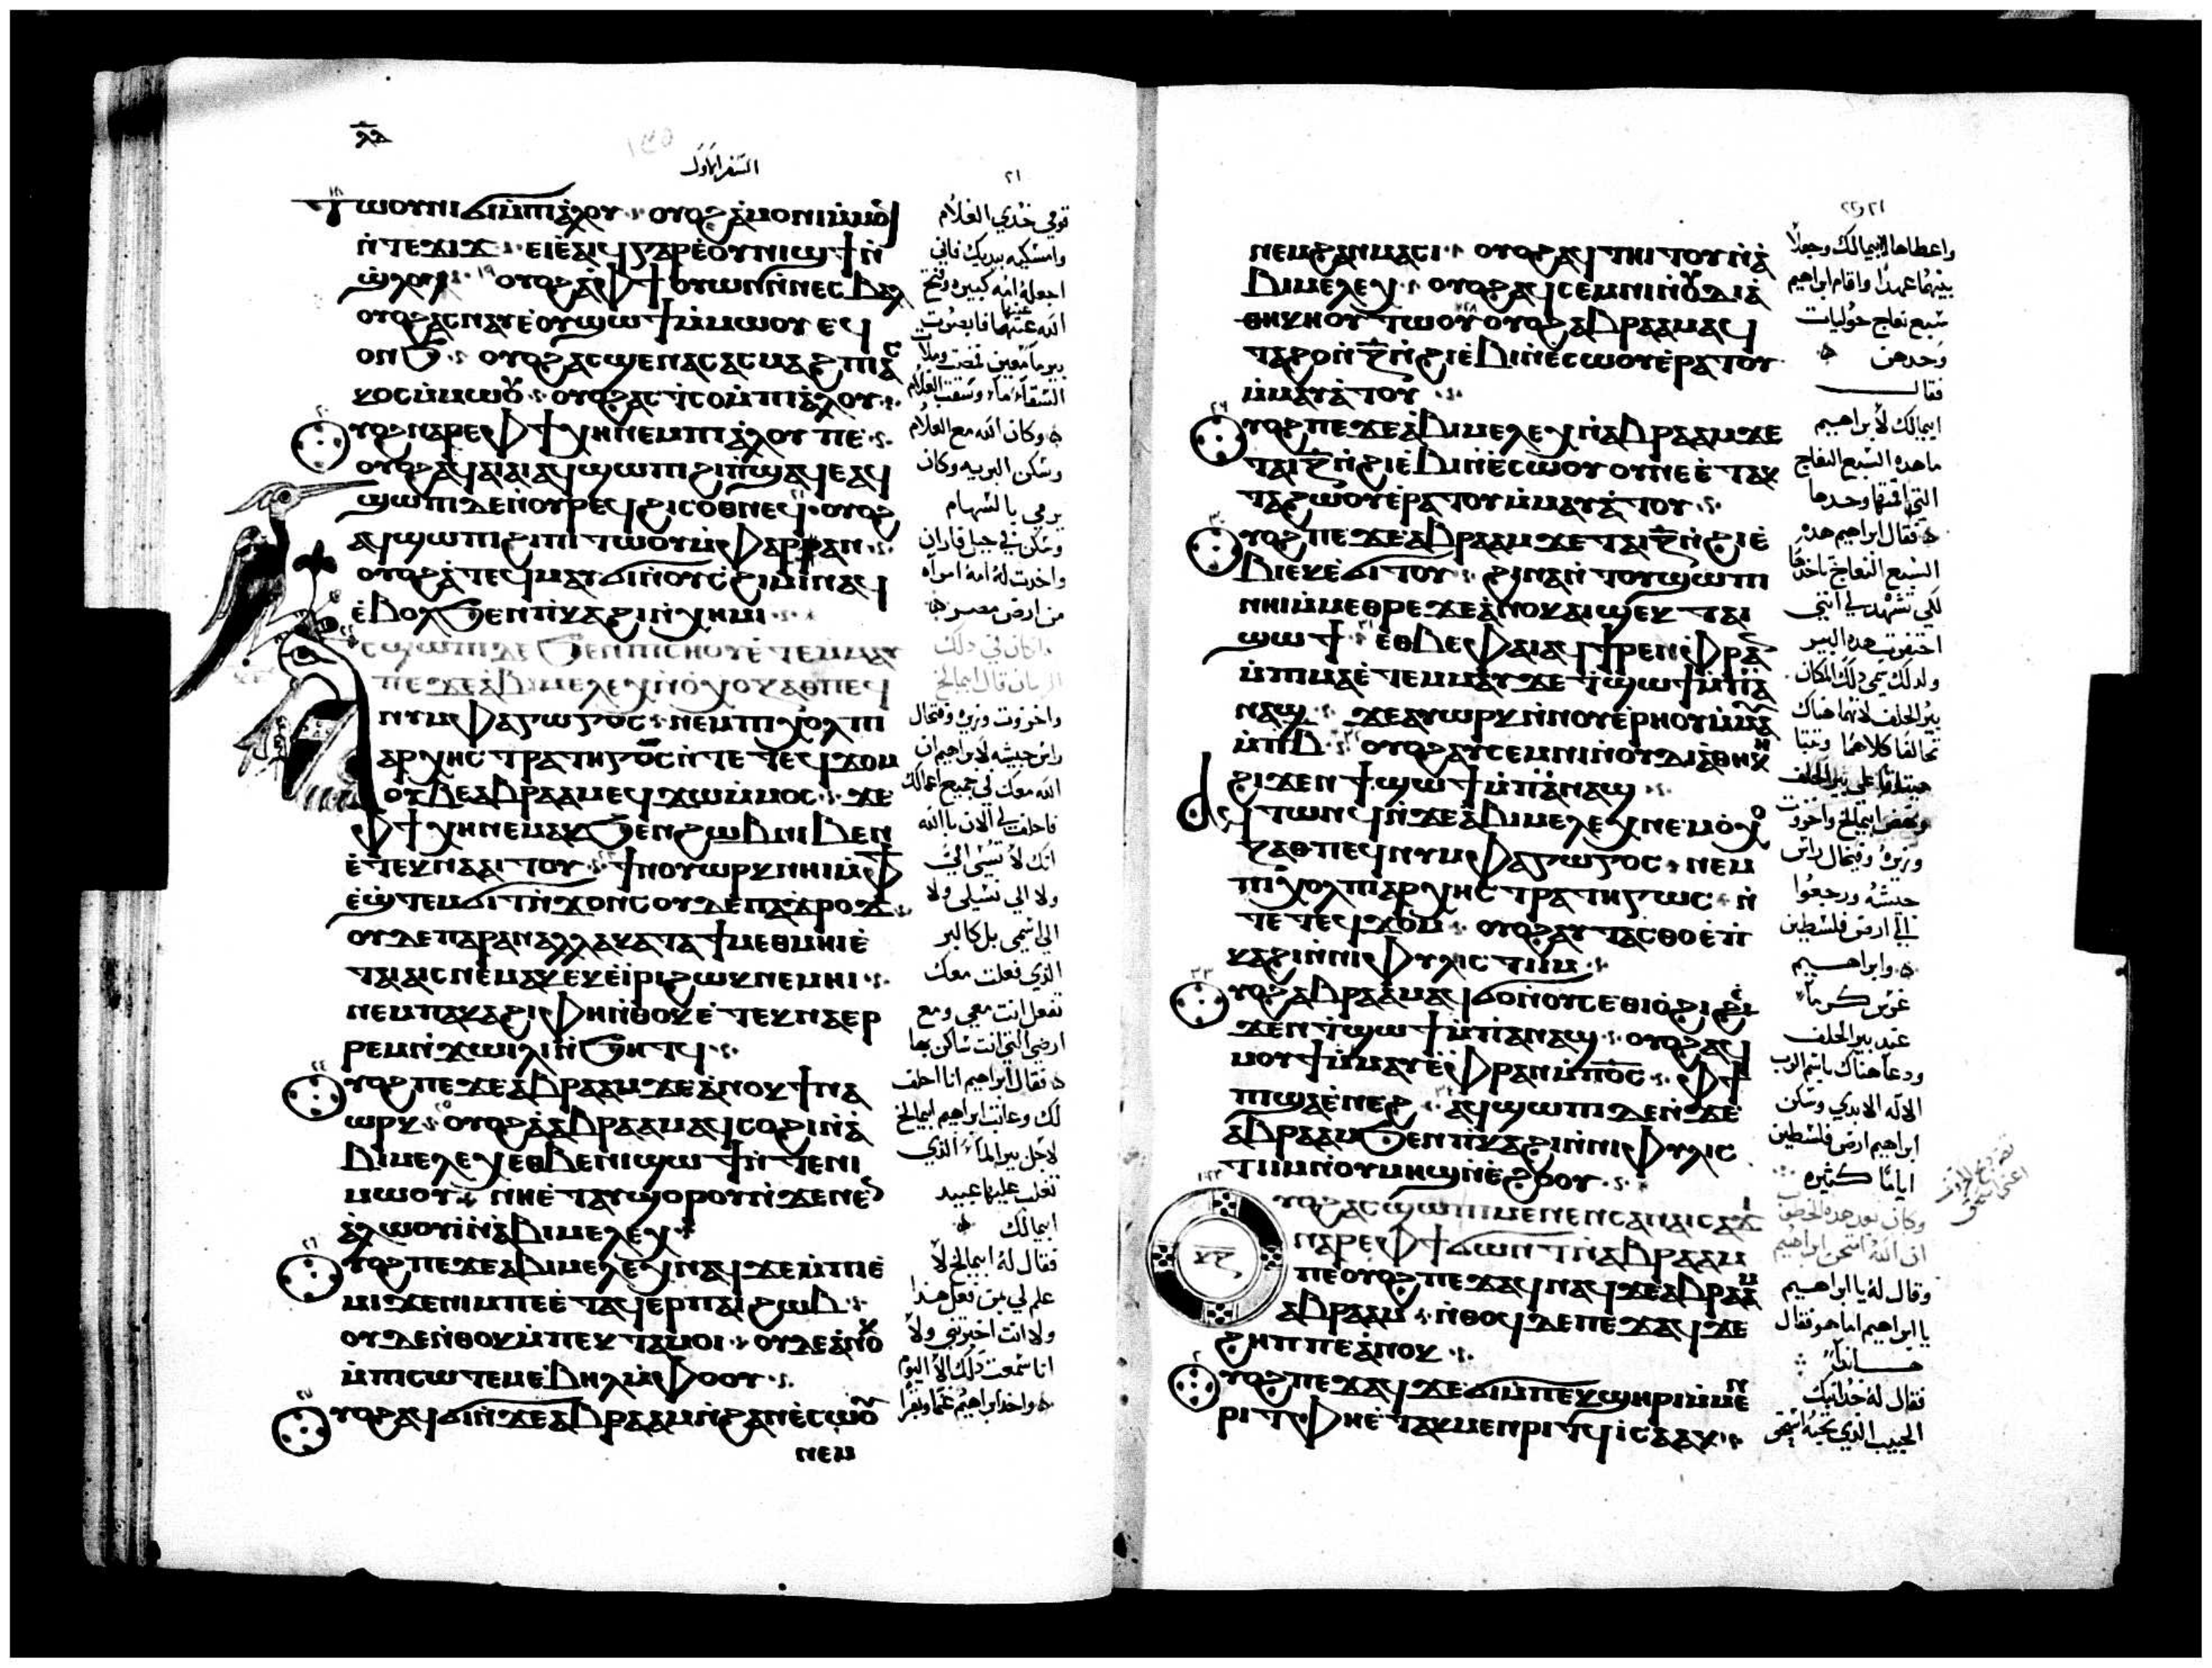 ⲗⲃ
السفر الاول
٢١
ⲧⲱⲟⲩⲛⲓ ϭⲓ ⲙ̀ⲡⲓⲁ̀ⲗⲟⲩ ⲟⲩⲟϩ ⲁ̀ⲙⲟⲛⲓ ⲙ̀ⲙⲟϥ
ⲛ̀ⲧⲉϫⲓϫ ⲉⲓⲉ̀ⲁⲓϥ ⲅⲁⲣ ⲉ̀ⲟⲩⲛⲓϣϯ ⲛ̀
ϣ̀ⲗⲟⲗ ⲟⲩⲟϩ ⲁ̀ ⲫϯ ⲟⲩⲱⲛ ⲛ̀ⲛⲉⲥⲃⲁⲗ
ⲟⲩⲟϩ ⲁⲥⲛⲁⲩ ⲉ̀ⲟⲩϣⲱϯ ⲙ̀ⲙⲱⲟⲩ ⲉϥ
ⲟⲛϧ ⲟⲩⲟϩ ⲁⲥϣⲉⲛⲁⲥ ⲁⲥⲙⲁϩ ⲡⲓⲁⲥ
ⲕⲟⲥ ⲙ̀ⲙⲱⲟⲩ ⲟⲩⲟϩ ⲁⲥⲧⲥⲟ ⲙ̀ⲡⲓⲁ̀ⲗⲟⲩ
ⲟⲩⲟϩ ⲛⲁⲣⲉ ⲫϯ ⲭⲏ ⲛⲉⲙ ⲡⲓⲁ̀ⲗⲟⲩ ⲡⲉ
ⲟⲩⲟϩ ⲁϥⲁⲓⲁⲓ ⲁϥϣⲱⲡⲓ ϩⲓ ⲡ̀ϣⲁϥⲉ ⲁϥ
ϣⲱⲡⲓ ⲇⲉ ⲛ̀ⲟⲩⲣⲉϥϩⲓⲥⲟⲑⲛⲉϥ ⲟⲩⲟϩ
ⲁϥϣⲱⲡⲓ ϩⲓ ⲡⲓⲧⲱⲟⲩ ⲙ̀ⲫⲁⲣⲣⲁⲛ
ⲟⲩⲟϩ ⲁ̀ ⲧⲉϥⲙⲁⲩ ϭⲓ ⲛ̀ⲟⲩⲥ̀ϩⲓⲙⲓ ⲛⲁϥ
ⲉ̀ⲃⲟⲗ ϧⲉⲛ ⲡ̀ⲕⲁϩⲓ ⲛ̀ⲭⲏⲙⲓ
ⲥϣⲱⲡⲓ ⲇⲉ ϧⲉⲛ ⲡⲓⲥⲏⲟⲩ ⲉ̀ⲧⲉⲙⲙⲁⲩ
ⲡⲉϫⲉ ⲁ̀ⲃⲓⲙⲉⲗⲉⲭ ⲛⲉⲙ ⲟ̀ⲭⲟⲍⲁⲑ ⲡⲉϥ
ⲛⲩⲙⲫⲁⲅⲱⲅⲟⲥ ⲛⲉⲙ ⲫⲓⲭⲟⲗ ⲡⲓ
ⲁⲣⲭⲏⲥⲧⲣⲁⲧⲏⲅⲟⲥ ⲛ̀ⲧⲉ ⲧⲉϥϫⲟⲙ
ⲟⲩⲃⲉ ⲁⲃⲣⲁⲁⲙ ⲉϥϫⲱ ⲙ̀ⲙⲟⲥ ϫⲉ
ⲫϯ ⲭⲏ ⲛⲉⲙⲁⲕ ϧⲉⲛ ϩⲱⲃ ⲛⲓⲃⲉⲛ
ⲉ̀ⲧⲉⲕⲛⲁⲁⲓⲧⲟⲩ ϯⲛⲟⲩ ⲱⲣⲕ ⲛⲏⲓ ⲙ̀ⲫϯ
ⲉ̀ϣ̀ⲧⲉⲙϭⲓⲧ ⲛ̀ϫⲟⲛⲥ ⲟⲩⲇⲉ ⲡⲁϫ̀ⲣⲟϫ
ⲟⲩⲇⲉ ⲡⲁⲣⲁⲛ ⲁⲗⲗⲁ ⲕⲁⲧⲁ ϯⲙⲉⲑⲙⲏⲓ ⲉ̀
ⲧⲁⲓⲁⲓⲥ ⲛⲉⲙⲁⲕ ⲉⲕⲉ̀ⲓⲣⲓ ϩⲱⲕ ⲛⲉⲙⲏⲓ
ⲛⲉⲙ ⲡⲁⲕⲁϩⲓ ⲫⲏ ⲛ̀ⲑⲟⲕ ⲉ̀ⲧⲉⲕⲛⲁⲉⲣ
ⲣⲉⲙⲛ̀ϫⲱⲓⲗⲓ ⲛ̀ϧⲏⲧϥ
ⲟⲩⲟϩ ⲡⲉϫⲉ ⲁ̀ⲃⲣⲁⲁⲙ ϫⲉ ⲁ̀ⲛⲟⲕ ϯⲛⲁ
ⲱⲣⲕ ⲟⲩⲟϩ ⲁ̀ ⲁ̀ⲃⲣⲁⲁⲙ ⲁϥⲥⲟϩⲓ ⲛ̀ⲁ̀
ⲃⲓⲙⲉⲗⲉⲭ ⲉⲑⲃⲉ ⲛⲓϣⲱϯ ⲛ̀ⲧⲉ ⲛⲓ
ⲙⲱⲟⲩ ⲛⲏ ⲉ̀ⲧⲁⲩϣⲟⲣⲟⲩ ⲛ̀ϫⲉ ⲛⲉ
ⲁ̀ⲗⲱⲟⲩⲓ̀ ⲛ̀ⲁ̀ⲃⲓⲙⲉⲗⲉⲭ
ⲟⲩⲟϩ ⲡⲉϫⲉ ⲁ̀ⲃⲓⲙⲉⲗⲉⲭ ⲛⲁϥ ϫⲉ ⲙ̀ⲡⲓⲉ̀
ⲙⲓ ϫⲉ ⲛⲓⲙ ⲡⲉ ⲉ̀ⲧⲁϥⲉⲣ ⲡⲁⲓϩⲱⲃ
ⲟⲩⲇⲉ ⲛ̀ⲑⲟⲕ ⲙ̀ⲡⲉⲕⲧⲁⲙⲟⲓ ⲟⲩⲇⲉ ⲁ̀ⲛⲟⲕ
ⲙ̀ⲡⲓⲥⲱⲧⲉⲙ ⲉ̀ⲃⲏⲗ ⲙ̀ⲫⲟⲟⲩ
ⲟⲩⲟϩ ⲁϥϭⲓ ⲛ̀ϫⲉ ⲁ̀ⲃⲣⲁⲁⲙ ⲛ̀ϩⲁⲛⲉ̀ⲥⲱⲟⲩ
ⲛⲉⲙ
قومي خذي الغلام
وامسكيه بيديك فاني
اجعله امه كبيره وفتح
الله عينيها فابصرت
بيرما معين فمضت وملات
السقاء ماء وسقت الغلام
وكان الله مع الغلام
وسكن البريه وكان
يرمي بالسهام
وسكن في جبل فاران
واخذت له امه امراه
من ارض مصر
وكان في ذلك
الزمان قال ابيمالخ
واخوزوت وزيره وفيخال
رايس جيشه لابراهيم ان
الله معك في جميع اعمالك
فاحلف لي الان بالله
انك لا تسي الي
ولا الي نسلي ولا
الي اسمي بل كالبر
الذي فعلت معك
تفعل انت معي ومع
ارضي التي انت ساكن بها
فقال ابراهيم انا احلف
لك وعاتب ابراهيم ابيمالخ
لاجل بير الماء الذي
تغلب عليها عبيد
ابيمالك
فقال له ابيمالخ لا
علم لي من فعل هذا
ولا انت اخبرتني ولا
انا سمعت ذلك الا اليوم
واخذ ابراهيم غنما وبقرا
٢١ و٢٢
ⲛⲉⲙ ϩⲁⲛⲙⲁⲥⲓ ⲟⲩⲟϩ ⲁϥⲧⲏⲓⲧⲟⲩ ⲛ̀ⲁ̀
ⲃⲓⲙⲉⲗⲉⲭ ⲟⲩⲟϩ ⲁϥⲥⲉⲙⲛⲓ ⲛ̀ⲟⲩⲇⲓⲁ̀
ⲑⲏⲕⲏ ⲟⲩⲧⲱⲟⲩ ⲟⲩⲟϩ ⲁⲃⲣⲁⲁⲙ ⲁϥ
ⲧⲁϩⲟ ⲛ̀ⲍ̄ ⲛ̀ϩⲓⲉ̀ⲃⲓ ⲛ̀ⲉ̀ⲥⲱⲟⲩ ⲉ̀ⲣⲁⲧⲟⲩ
ⲙ̀ⲙⲁⲩⲁ̀ⲧⲟⲩ
ⲟⲩⲟϩ ⲡⲉϫⲉ ⲁ̀ⲃⲓⲙⲉⲗⲉⲭ ⲛ̀ⲁ̀ⲃⲣⲁⲁⲙ ϫⲉ
ⲧⲁⲓⲍ̄ ⲛ̀ϩⲓⲉ̀ⲃⲓ ⲛ̀ⲉ̀ⲥⲱⲟⲩ ⲟⲩ ⲛⲉ ⲉ̀ⲧⲁⲕ
ⲧⲁϩⲱⲟⲩ ⲉ̀ⲣⲁⲧⲟⲩ ⲙ̀ⲙⲁⲩⲁ̀ⲧⲟⲩ
ⲟⲩⲟϩ ⲡⲉϫⲉ ⲁ̀ⲃⲣⲁⲁⲙ ϫⲉ ⲧⲁⲓⲍ̄ ⲛ̀ϩⲓⲉ̀
ⲃⲓ ⲉⲕⲉ̀ϭⲓⲧⲟⲩ ϩⲓⲛⲁ ⲛ̀ⲧⲟⲩϣⲱⲡⲓ
ⲛⲏⲓ ⲙ̀ⲙⲉⲑⲣⲉ ϫⲉ ⲁ̀ⲛⲟⲕ ⲁⲓϣⲉⲕ ⲧⲁⲓ
ϣⲱϯ ⲉⲑⲃⲉ ⲫⲁⲓ ⲁϥϯⲣⲉⲛ ⲫ̀ⲣⲁⲛ
ⲙ̀ⲡⲓⲙⲁ ⲉ̀ⲧⲉⲙⲙⲁⲩ ϫⲉ ϯϣⲱϯ ⲙ̀ⲡⲓⲁ̀
ⲛⲁϣ ϫⲉ ⲁⲩⲱⲣⲕ ⲛ̀ⲛⲟⲩⲉ̀ⲣⲏⲟⲩ ⲙ̀ⲙⲁⲩ
ⲙ̀ⲡⲃ̄ ⲟⲩⲟϩ ⲁⲩⲥⲉⲙⲛⲓ ⲛ̀ⲟⲩⲇⲓⲁⲑⲏⲕⲏ
ϩⲓϫⲉⲛ ϯϣⲱϯ ⲙ̀ⲡⲓⲁ̀ⲛⲁϣ
ⲁϥⲧⲱⲛϥ ⲛ̀ϫⲉ ⲁ̀ⲃⲓⲙⲉⲗⲉⲭ ⲛⲉⲙ ⲟ̀ⲭⲟ
ⲍⲁⲑ ⲡⲉϥⲛⲩⲙⲫⲁⲅⲱⲅⲟⲥ ⲛⲉⲙ
ⲫⲓⲭⲟⲗ ⲡⲓⲁⲣⲭⲏⲥⲧⲣⲁⲧⲏⲅⲱⲥ ⲛ̀
ⲧⲉ ⲧⲉϥϫⲟⲙ ⲟⲩⲟϩ ⲁⲩⲧⲁⲥⲑⲟ ⲉ̀ⲡ̀
ⲕⲁϩⲓ ⲛ̀ⲛⲓⲫⲩⲗⲓⲥⲧⲓⲙ
ⲟⲩⲟϩ ⲁⲃⲣⲁⲁⲙ ⲁϥϭⲟ ⲛ̀ⲟⲩⲥⲉⲑⲓⲟ̀ϩⲓ ϩⲓ
ϫⲉⲛ ϯϣⲱϯ ⲙ̀ⲡⲓⲁⲛⲁϣ ⲟⲩⲟϩ ⲁϥ
ⲙⲟⲩϯ ⲙ̀ⲙⲁⲩ ⲉ̀ⲫ̀ⲣⲁⲛ ⲙ̀ⲡⲟ̄ⲥ̄ ⲫϯ
ⲡⲓϣⲁⲉ̀ⲛⲉϩ ⲁϥϣⲱⲡⲓ ⲇⲉ ⲛ̀ϫⲉ
ⲁ̀ⲃⲣⲁⲁⲙ ϧⲉⲛ ⲡ̀ⲕⲁϩⲓ ⲛ̀ⲛⲓⲫⲩⲗⲓⲥ
ⲧⲓⲙ ⲛ̀ⲟⲩⲙⲏϣ ⲛ̀ⲉ̀ϩⲟⲟⲩ
ⲟⲩⲟϩ ⲁⲥϣⲱⲡⲓ ⲙⲉⲛⲉⲛⲥⲁ ⲛⲁⲓⲥⲁϫⲓ
ⲛⲁⲣⲉ ⲫϯ ϭⲱⲛⲧ ⲛ̀ⲁⲃⲣⲁⲁⲙ
ⲡⲉ ⲟⲩⲟϩ ⲡⲉϫⲁϥ ⲛⲁϥ ϫⲉ ⲁⲃⲣⲁⲁⲙ
ⲁⲃⲣⲁⲁⲙ ⲛ̀ⲑⲟϥ ⲇⲉ ⲡⲉϫⲁϥ ϫⲉ
ϩⲏⲡⲡⲉ ⲁ̀ⲛⲟⲕ
ⲟⲩⲟϩ ⲡⲉϫⲁϥ ϫⲉ ϭⲓ ⲙ̀ⲡⲉⲕϣⲏⲣⲓ ⲙ̀ⲙⲉⲛ
ⲣⲓⲧ ⲫⲏ ⲉ̀ⲧⲁⲕⲙⲉⲛⲣⲓⲧϥ ⲓⲥⲁⲁⲕ
ⲕⲍ
واعطاها لابيمالك وجعلا
بينهما عهدا واقام ابراهيم
سبع نعاج حوليات
وحدهن
فقال
ابيمالك لابراهيم
ما هذه السبع النعاج
التي اقمتها وحدها
فقال ابراهيم هذه
السبع النعاج تاخذها
لكي تشهد لي انني
احتفرت هذه البير
ولذلك سمي ذلك المكان
بير الحلف لانهما هناك
تحالفا كلاهما وثبتا
ميثاقا على بير الحلف
ونهض ابيمالخ واخوزوت
وزيره وفيخال رايس
جيشه ورجعوا
الي ارض فلسطين
وابراهيم
غرس كرما
عند بير الحلف
ودعا هناك باسم الرب
الاله الابدي وسكن
ابراهيم ارض فلسطين
اياما كثيره
وكان بعد هذه الخطوب
ان الله امتحن ابراهيم
وقال له يا ابراهيم
يا ابراهيم اما هو فقال
هانذا
فقال له خذ ابنك
الحبيب الذي تحبه اسحق